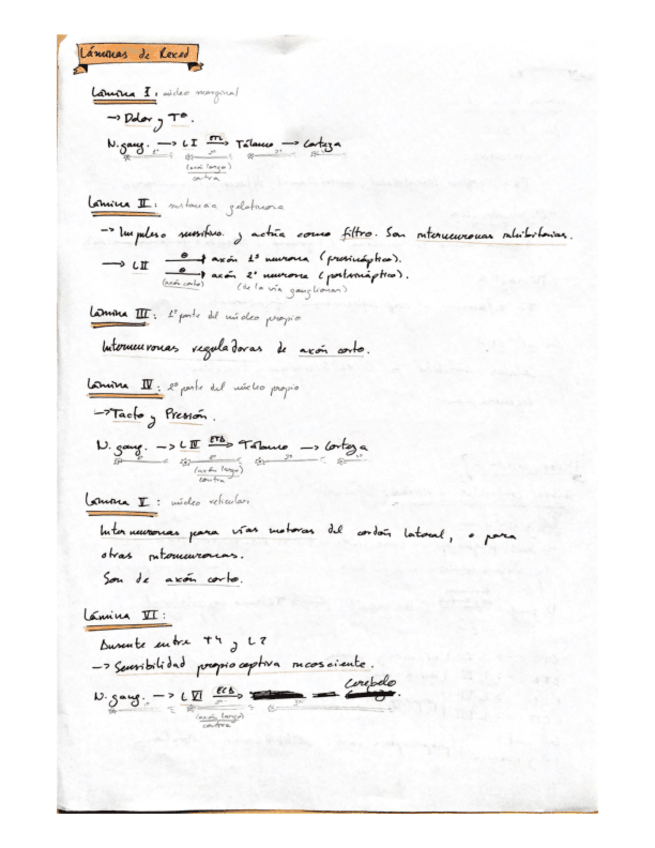 Láminas de Rexed
Lámina I: núcleo marginal
→ Dolor y Tº.
N. gang. → L I → Tálamo → Corteza
(axón largo)
contra
Lámina II: sustancia gelatinosa
→ Impulso sensitivo y actúa como filtro. Son interneuronas inhibitorias.
→ L II ⊖ axón 1ª neurona (presináptico).
⊖ axón 2ª neurona (postsináptico).
(axón corto) (de la vía ganglionar)
Lámina III: 1ª parte del núcleo propio
Interneuronas reguladoras de axón corto.
Lámina IV: 2ª parte del núcleo propio
→ Tacto y Presión.
N. gang. → L IV → Tálamo → Corteza
(axón largo)
contra
Lámina V: núcleo reticular
Interneuronas para vías motoras del cordón lateral, o para
otras interneuronas.
Son de axón corto.
Lámina VI:
Ausente entre T4 y L2
→ Sensibilidad propioceptiva incosciente.
Cerebelo
N. gang. → L VI →
(axón largo)
contra